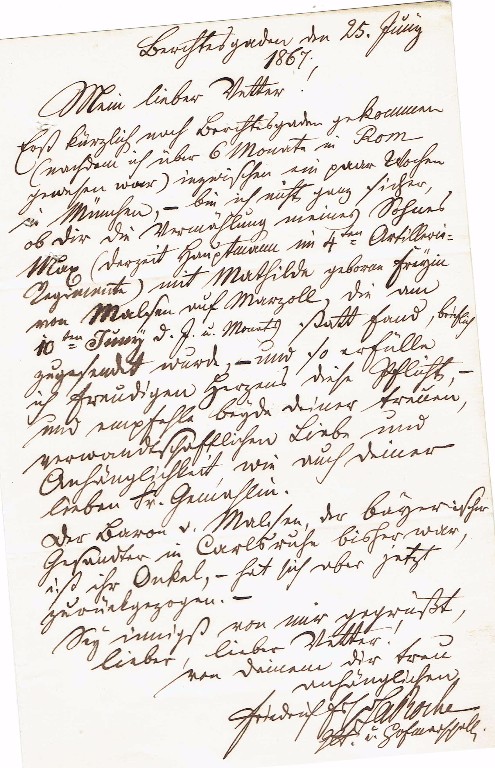 Berchtesgaden den 25. Juny
1867.
Mein lieber Vetter!
Erst kürzlich nach Berchtesgaden gekommen
(nachdem ich über 6 Monate in Rom
gewesen war) inzwischen ein paar Wochen
in München, – bin ich nicht ganz sicher,
ob dir die Vermählung meines Sohnes
Max (derzeit Hauptmann im 4ten Artillerie-
Regimente) mit Mathilde geborne Freyin
von Malsen auf Marzoll, die am
10ten Juny d. J. u. Monats statt fand,
zugesendet wurde, – und so erfülle
ich freudigen Herzens diese Pflicht, –
und empfehle beyde deiner treuen,
verwandtschaftlichen Liebe und
Anhänglichkeit wie auch deiner
lieben Fr. Gemahlin.
Der Baron v. Malsen, der bayerischer
Gesandter in Carlsruhe bisher war,
ist ihr Onkel, – hat sich aber jetzt
zurückgezogen. –
Sey innigst von mir gegrüßt,
lieber, lieber Vetter!
von deinem dir treu
anhänglichen
Friedrich LaRoche
u. Hofmarschall